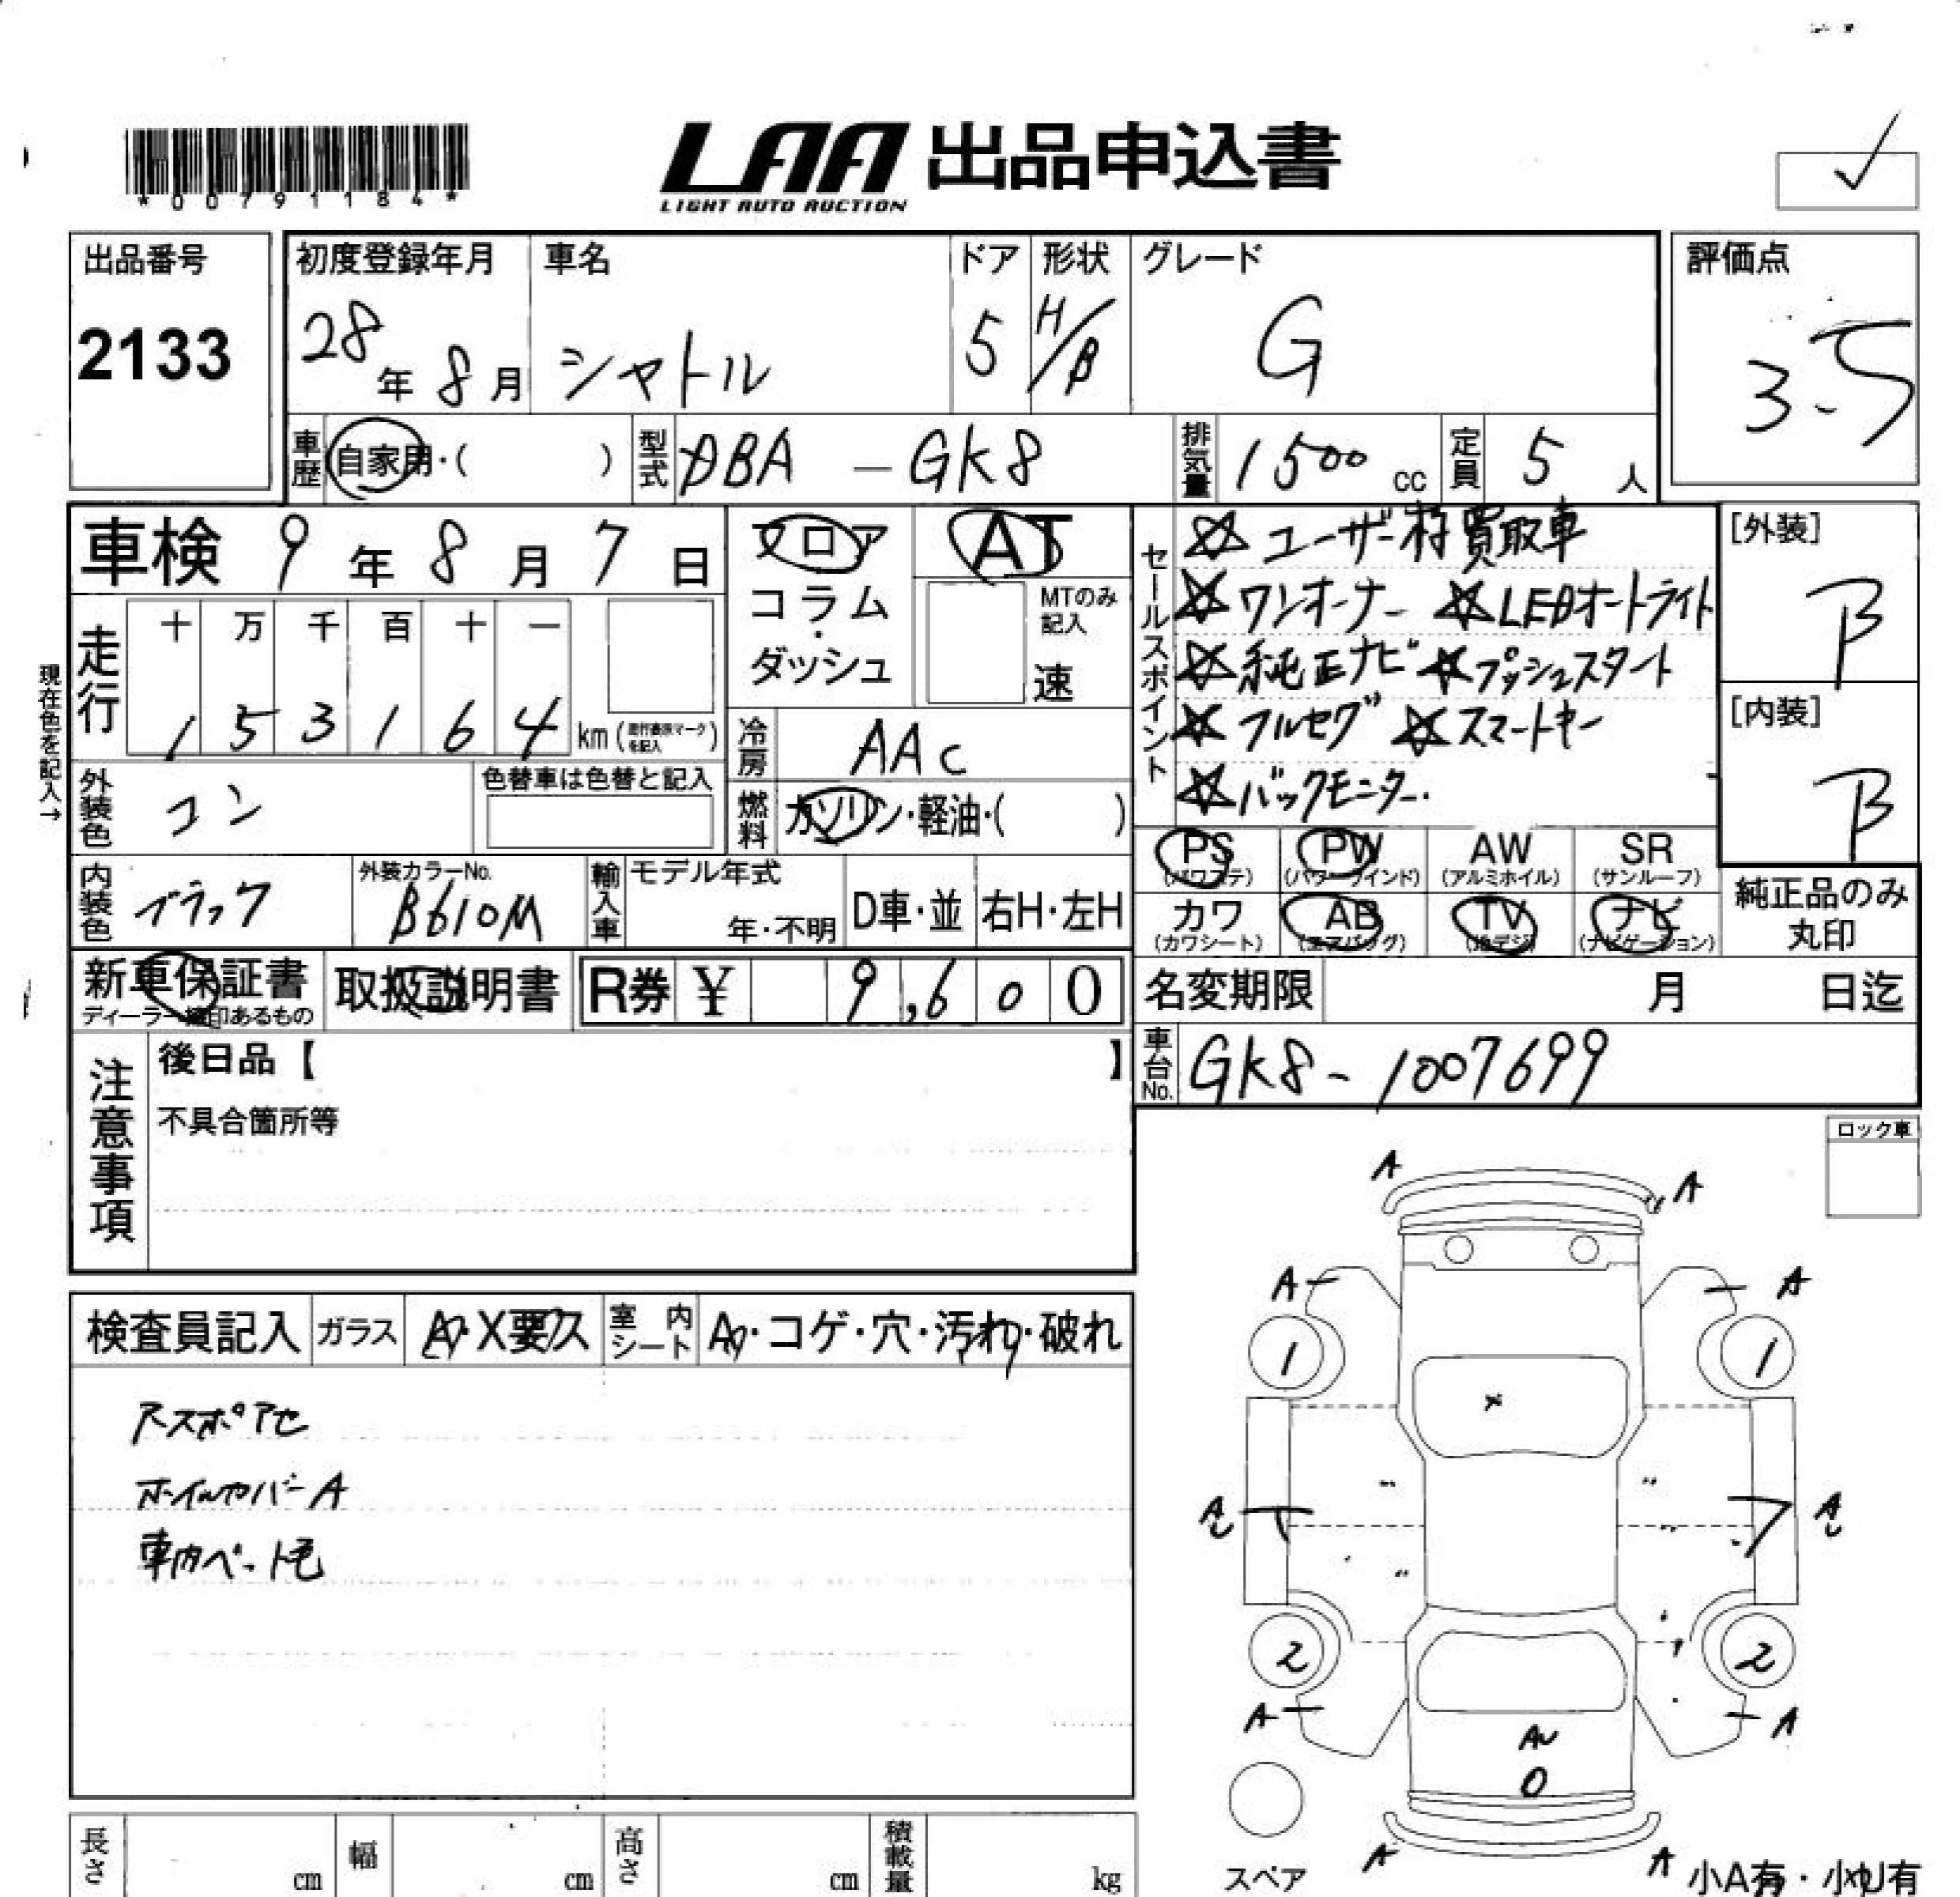 *00791184*
LAA 出品申込書
LIGHT AUTO AUCTION
出品番号
2133
初度登録年月
28年8月
車名
シャトル
ドア
5
形状
H/B
グレード
G
評価点
3.5
車歴 自家用・( )
型式 DBA - GK8
排気量 1500 cc
定員 5 人
車検 9年8月7日
フロア
コラム
・
ダッシュ
AT
MTのみ記入
速
セールスポイント
☆ユーザー様買取車
☆ワンオーナー ☆LEDオートライト
☆純正ナビ ☆プッシュスタート
☆フルセグ ☆スマートキー
☆バックモニター.
[外装]
B
[内装]
B
現在色を記入→
走行
十 万 千 百 十 一
1 5 3 1 6 4 km
冷房 AAC
外装色 コン
色替車は色替と記入
燃料 ガソリン・軽油・( )
PS (パワステ)
PW (パワーウインド)
AW (アルミホイル)
SR (サンルーフ)
カワ (カワシート)
AB (エアバッグ)
TV (地デジ)
ナビ (ナビゲーション)
純正品のみ
丸印
内装色 ブラック
外装カラーNo.
B610M
輸入車
モデル年式
年・不明
D車・並
右H・左H
新車保証書
ディーラー捺印あるもの
取扱説明書
R券 ¥ 9,600
名変期限 月 日迄
車台No. GK8-1007699
注意事項
後日品【 】
不具合箇所等
ロック車
検査員記入
ガラス A・X要ス
室内シート A・コゲ・穴・汚れ・破れ
ホイルカバーA
車内ペット毛
A A
A A
1 1
X
A A
2 2
A A
AU
O
A A
スペア
小A有・小U有
長さ cm
幅 cm
高さ cm
積載量 kg